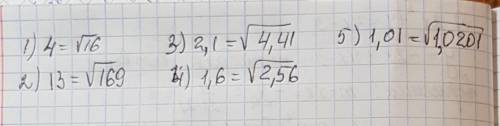 1) 4 = √16 3) 2,1 = √4,41 5) 1,01 = √1,0201
2) 13 = √169 4) 1,6 = √2,56